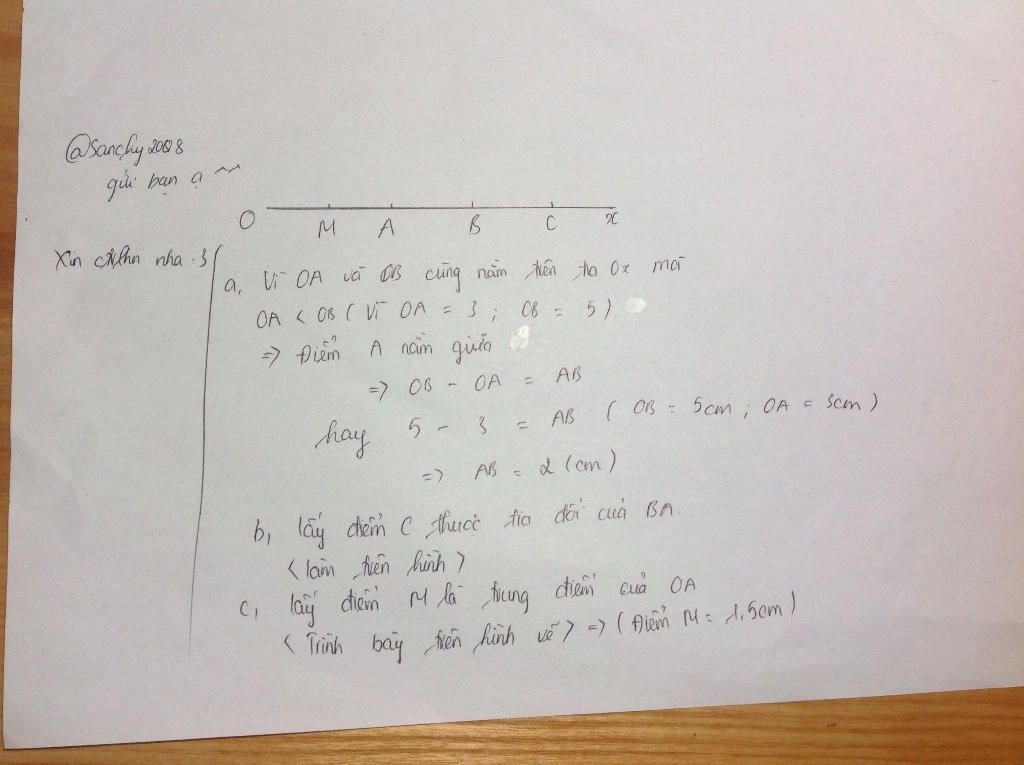 @Sanchy2008
gửi bạn ạ ^^
O M A B C x
Xin ctlhn nha :3
a, Vì OA và OB cùng nằm trên tia Ox mà
OA < OB ( Vì OA = 3 ; OB = 5 )
=> Điểm A nằm giữa
=> OB - OA = AB
hay 5 - 3 = AB ( OB = 5cm ; OA = 3cm )
=> AB = 2 (cm)
b, lấy điểm C thuộc tia đối của BA.
< làm trên hình >
c, lấy điểm M là trung điểm của OA
< Trình bày trên hình vẽ > => ( Điểm M = 1,5cm )